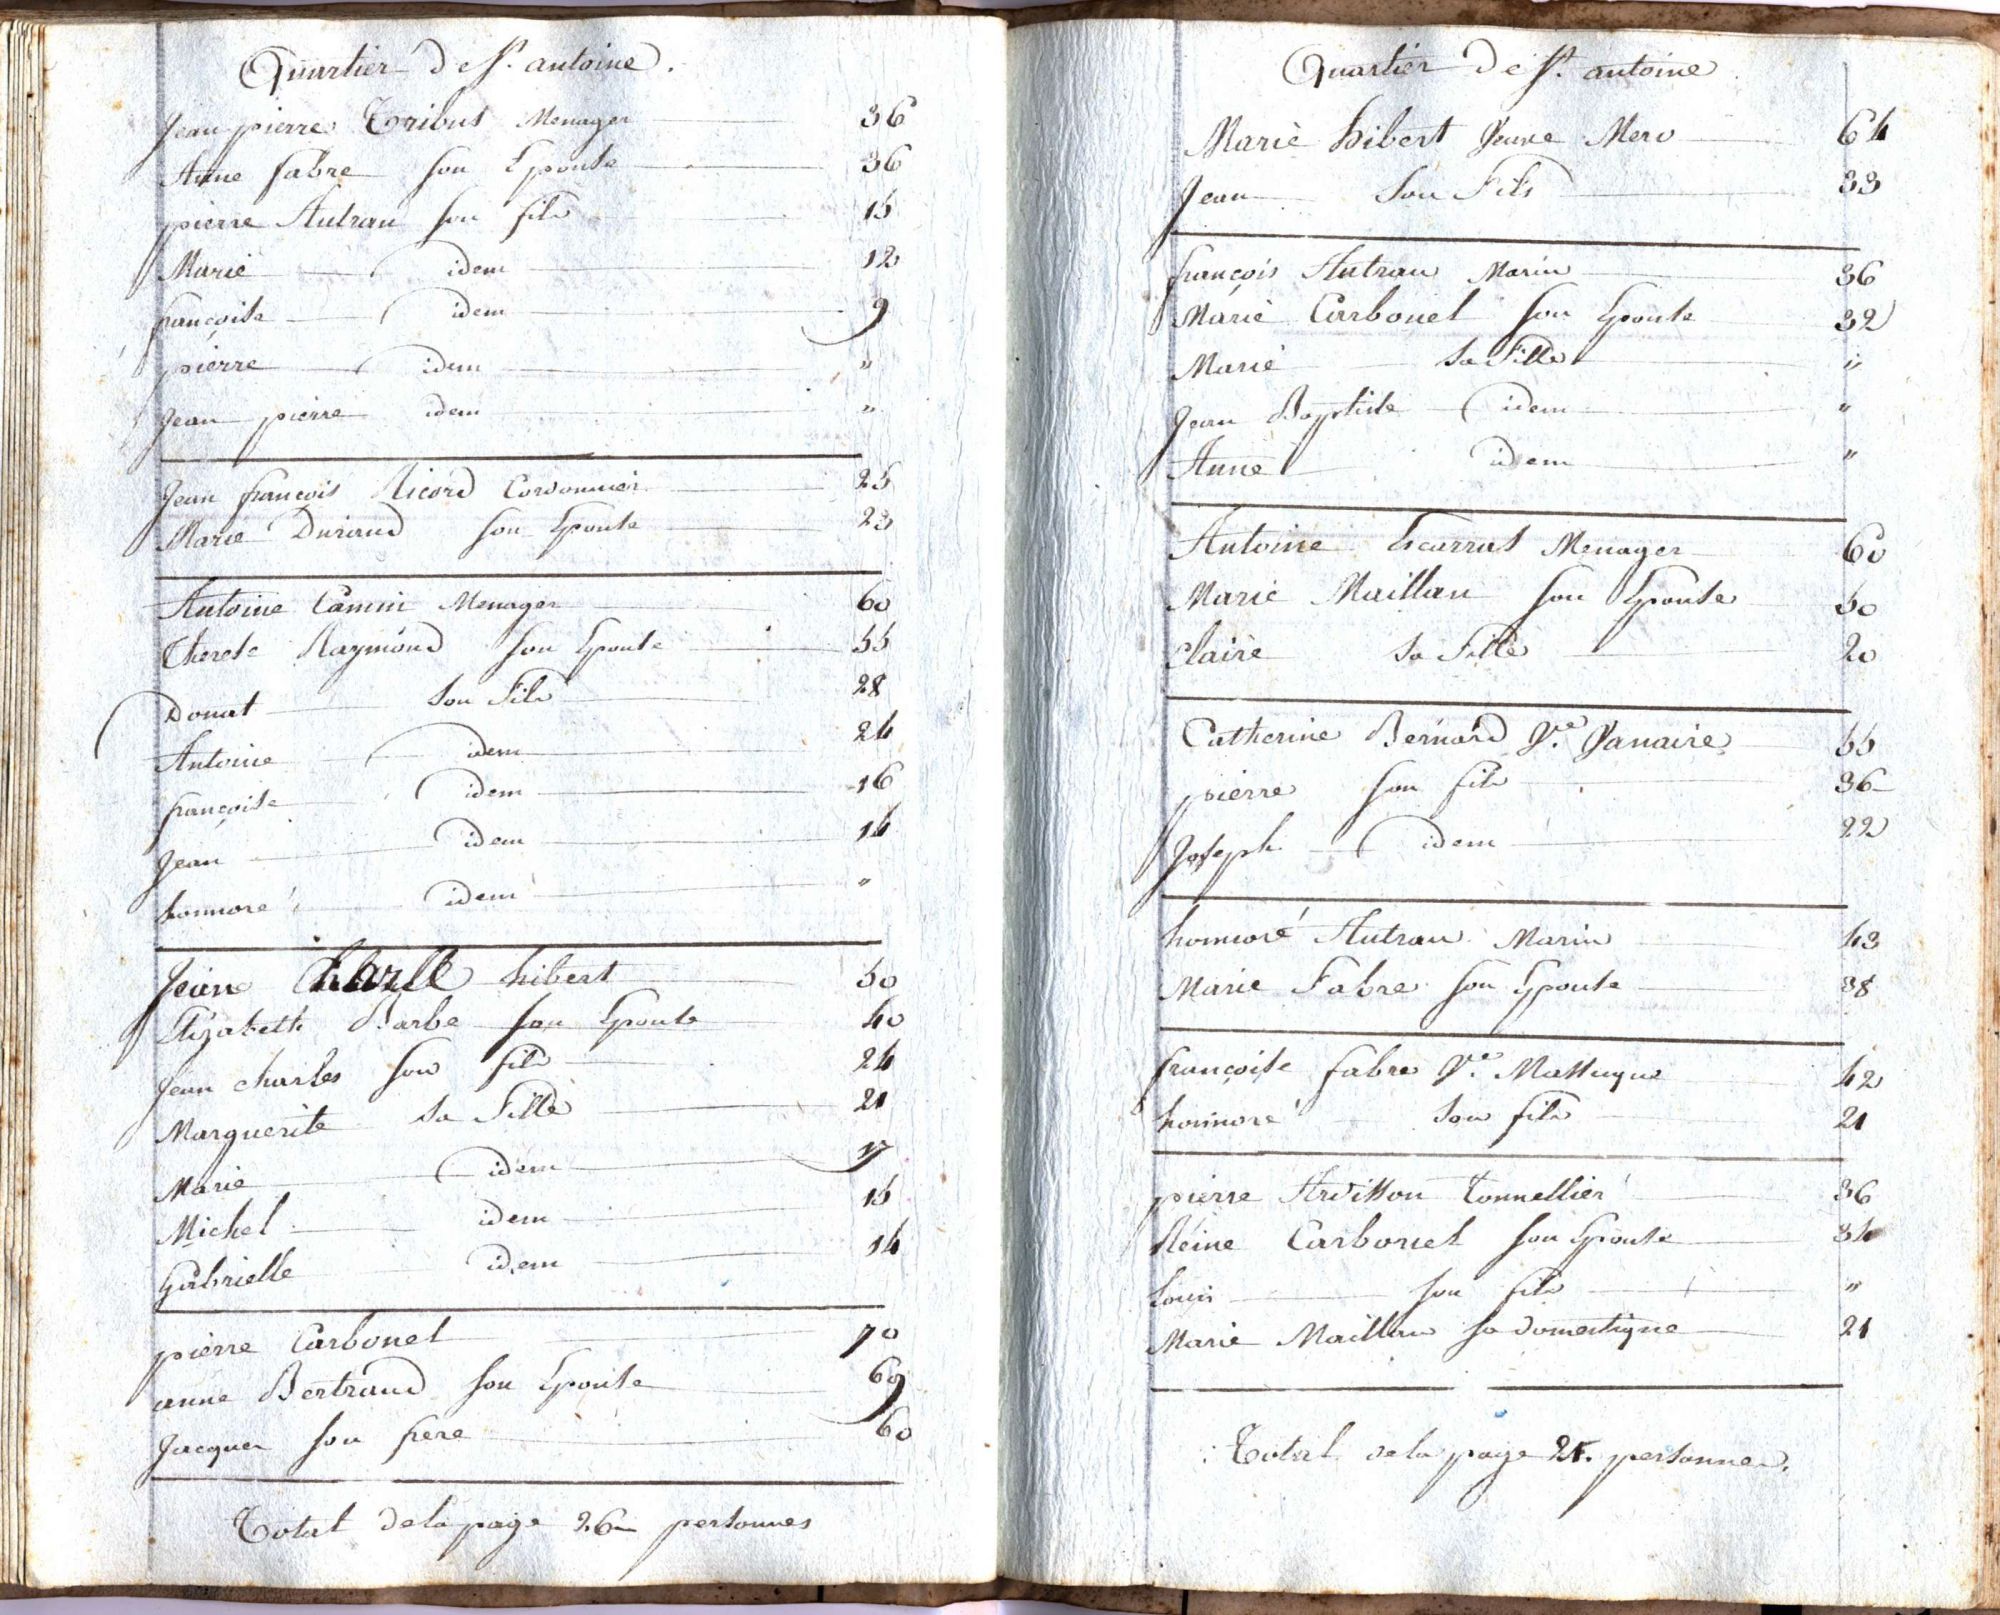 Quartier de St. antoine.
Jean pierre Tribut Menager 36
Anne fabre son Epouse 36
pierre Autran son fils 15
Marie idem 12
françoise idem 9
pierre idem "
Jean pierre idem "
Jean françois Ricord Cordonnier 25
Marie Durand son Epouse 23
Antoine Camin Menager 60
Therese Raymond son Epouse 55
Donat son Fils 28
Antoine idem 24
françoise idem 16
Jean idem 14
honnoré idem "
Jean Charle hibert 50
Elizabeth Barbe son Epouse 40
Jean charles son fils 24
Marguerite sa Fille 21
Marie idem 17
Michel idem 15
Gabrielle idem 14
pierre Carbonel 70
anne Bertrand son Epouse 69
Jacques son frere 60
Total de la page 26 personnes
Quartier de St. antoine
Marie hibert Mere 64
Jean son Fils 33
françois Autran Marin 36
Marie Carbonel son Epouse 32
Marie sa Fille "
Jean Baptiste idem "
Anne idem "
Antoine Escarrat Menager 60
Marie Maillan son Epouse 50
Claire sa Fille 20
Catherine Bernard Ve. Januaire 55
pierre son fils 36
Joseph idem 22
honnoré Autran Marin 43
Marie Fabre son Epouse 38
françoise fabre Ve. Massuque 42
honnoré son fils 21
pierre Arvisson Tonnellier 36
Reine Carbonel son Epouse 34
Louis son fils "
Marie Maillan sa domestique 21
Total de la page 21. personnes.